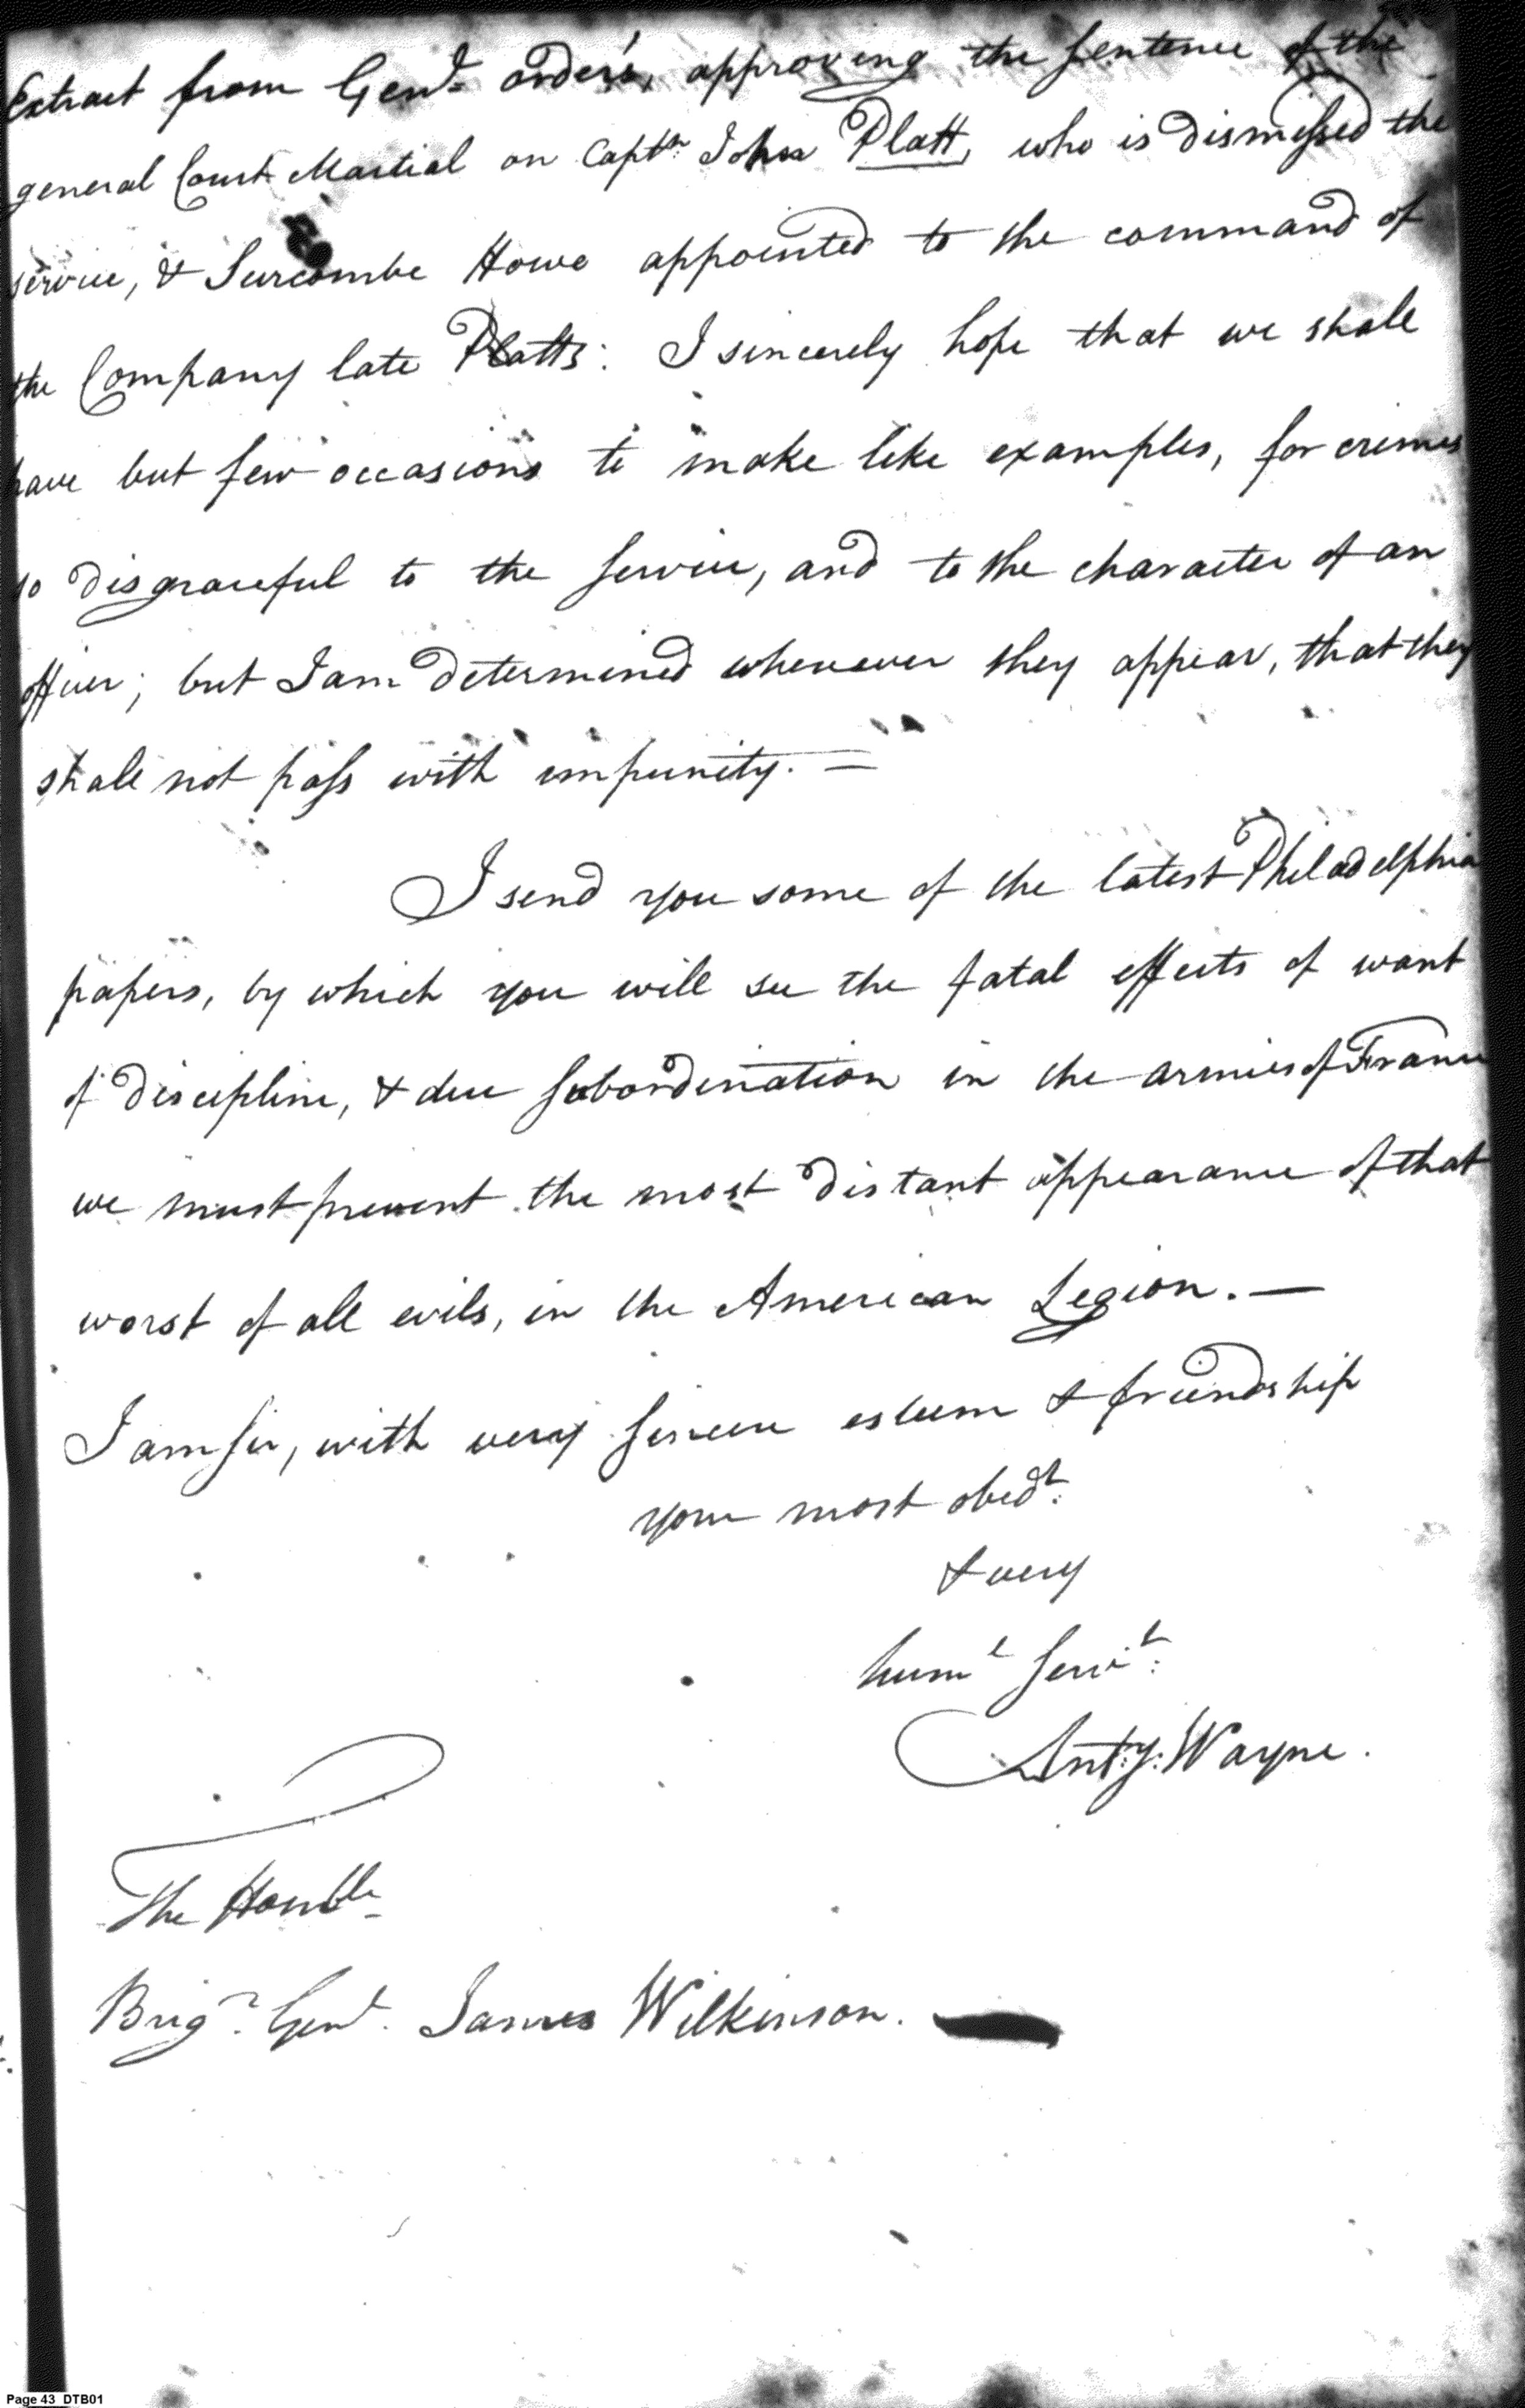 Extract from Genl. orders, approving the sentence of the
general Court Martial on Captn. John Platt, who is dismissed the
service, & Surcombe Howe appointed to the command of
the Company late Platts: I sincerely hope that we shall
have but few occasions to make like examples, for crimes
so disgraceful to the service, and to the character of an
officer; but I am determined whenever they appear, that they
shall not pass with impunity. =
I send you some of the latest Philadelphia
papers, by which you will see the fatal effects of want
of discipline, & due subordination in the armies of France
we must prevent the most distant appearance of that
worst of all evils, in the American Legion. —
I am sir, with very sincere esteem & friendship
your most obedt.
& very
huml servt.
Anty. Wayne.
The Honble
Brigr. Genl. James Wilkinson.
Page 43 DTB01